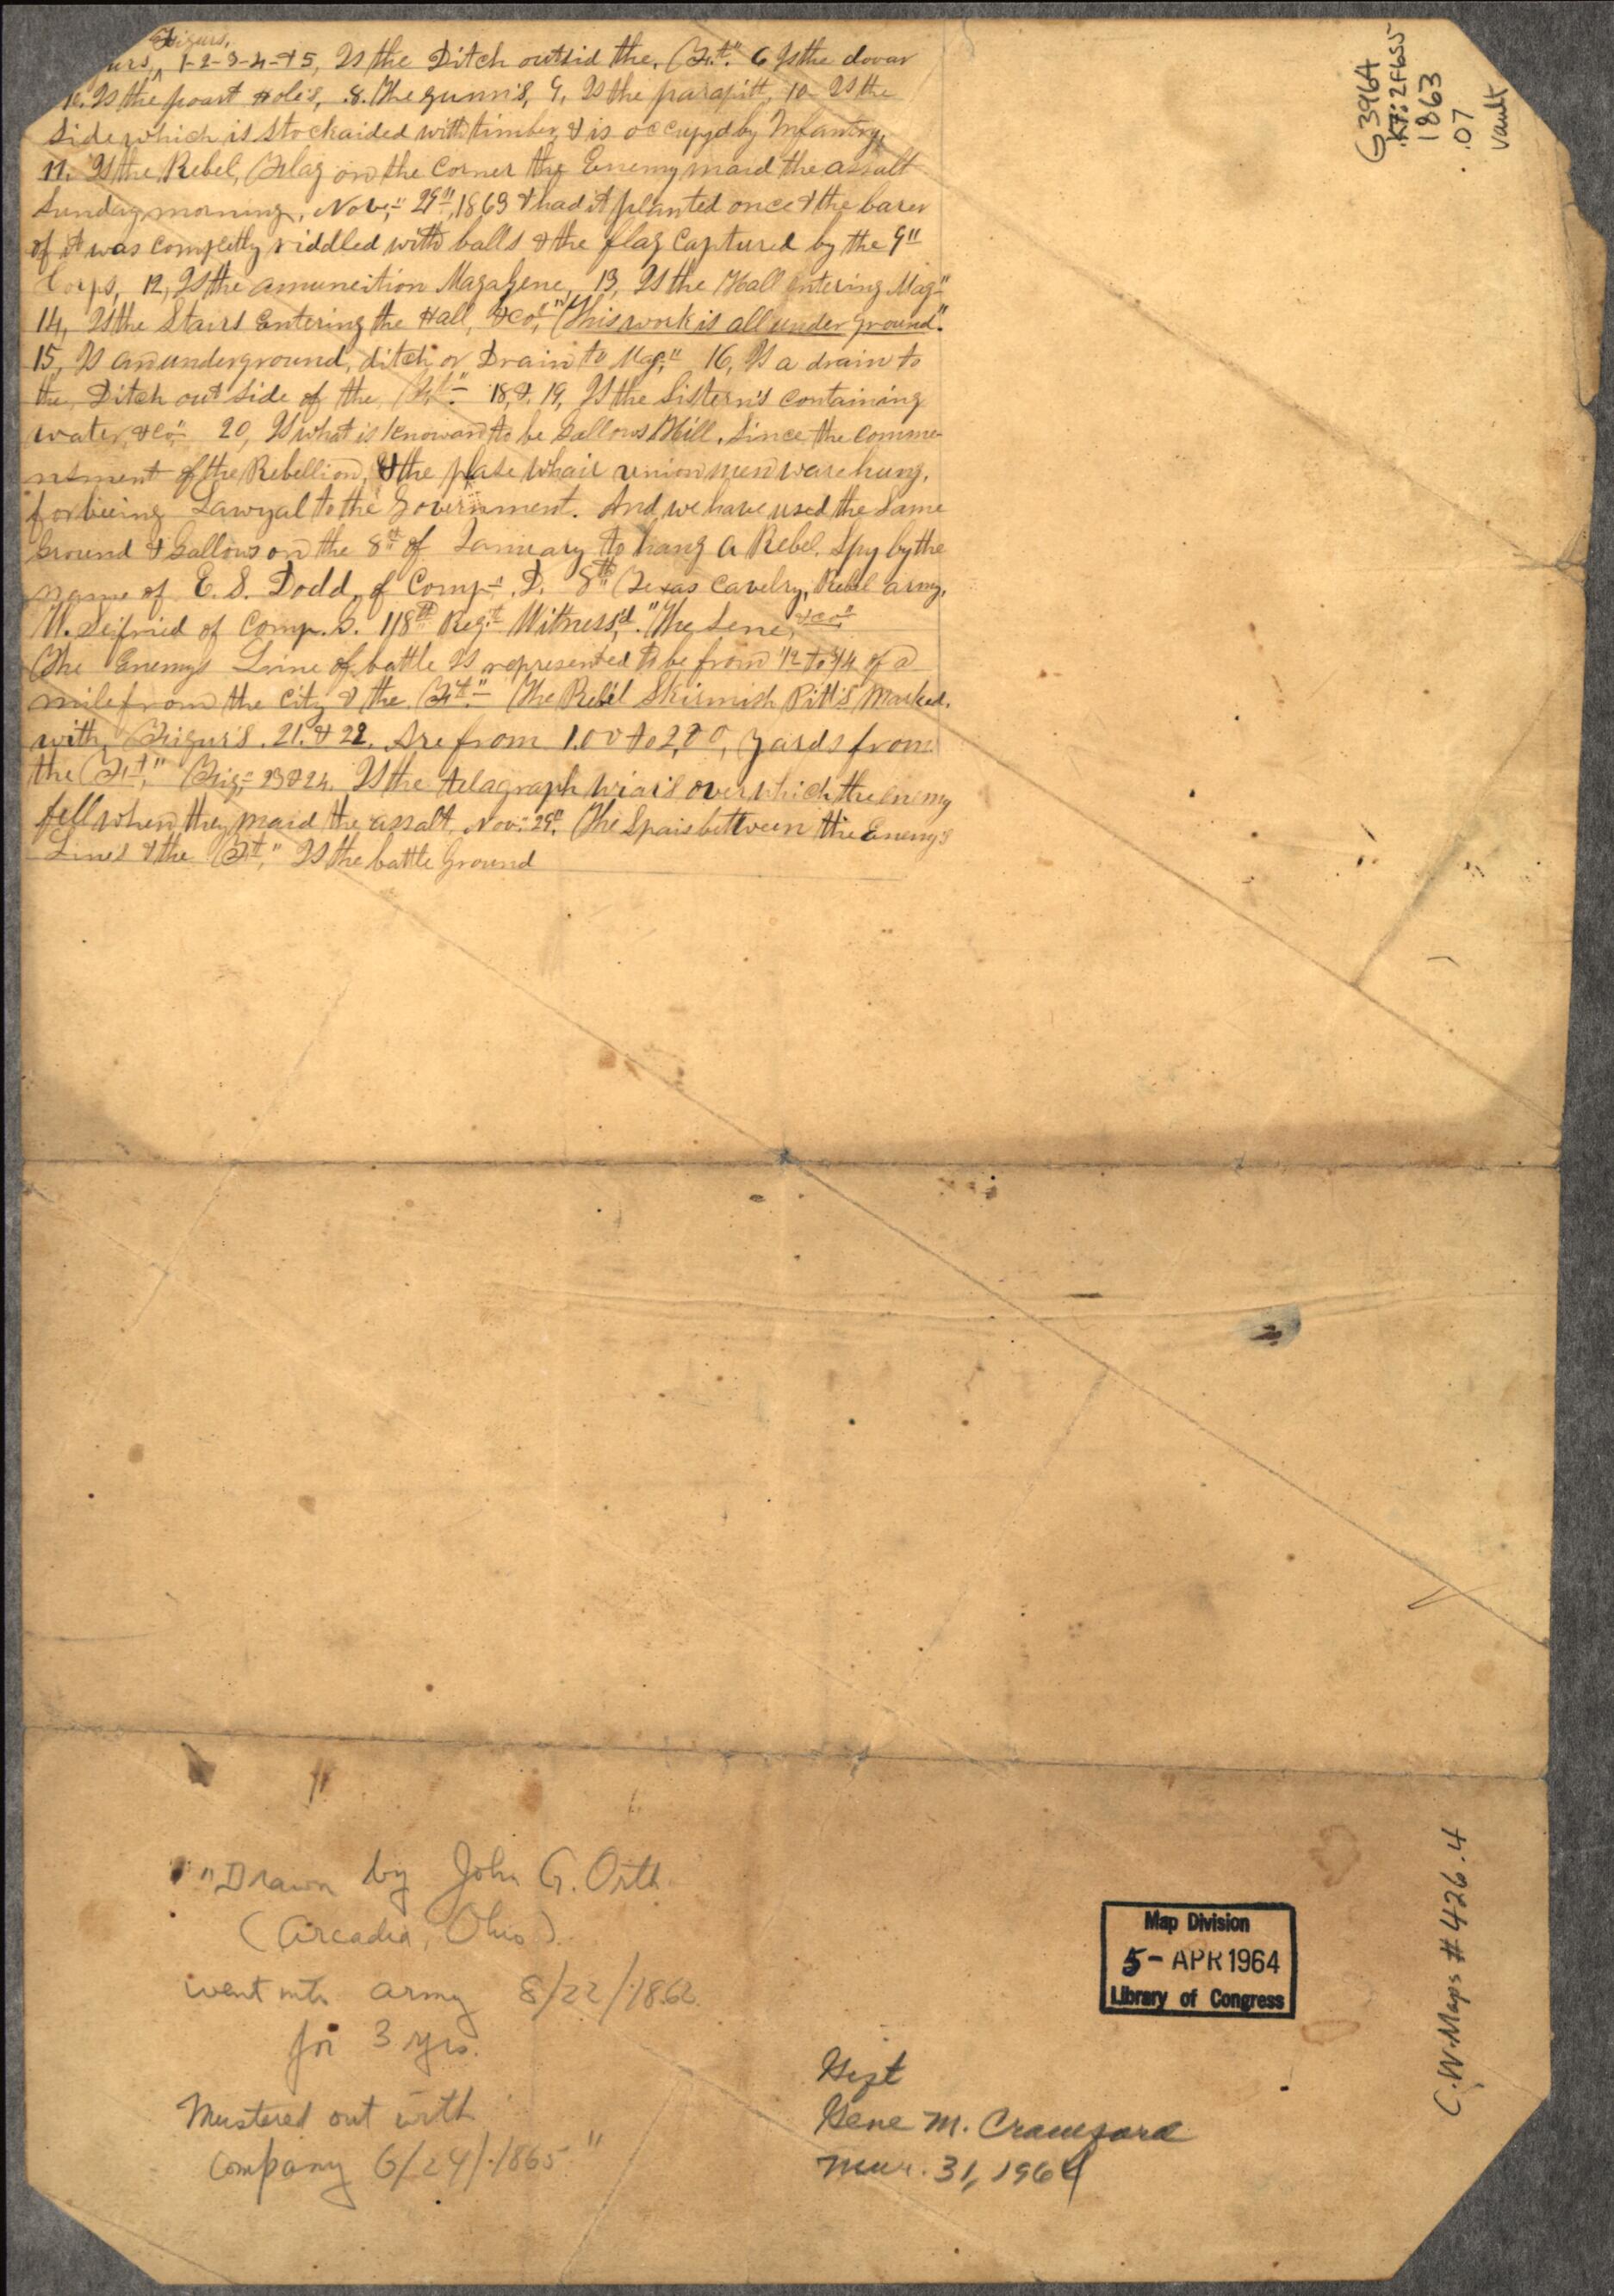 Figurs,
urs, 1-2-3-4-&5, Is the Ditch outsid the, Ft." 6 Is the dovar
Is the poart Hole's, .8. The gunn's, 9, Is the parapitt, 10 Is the
Side which is Stockaided with timber, & is occupyd by Infantry,
11. Is the Rebel, Flag on the Corner the Enemy maid the assalt
Sunday morning, Nov," 29", 1863 & had it planted once & the barer
of it was completly riddled with balls & the flag Captured by the 9"
Corps, 12, Is the amuneition Magazene, 13, Is the Hall Entering Mag"
14, Is the Stairs Entering the Hall, &Co," "(This work is all under ground".
15, Is an underground, ditch or Drain to Mag," 16, Is a drain to
the, Ditch out Side of the, Ft." 18, & 19, Is the Sistern's Containing
water, &Co," 20, Is what is Knowan to be Gallows Hill. Since the Comme-
nsment of the Rebellion, & the plase whair union men ware hung,
for bieing Lawyal to the Government. And we have used the Same
Ground & Gallows on the 8th of January to hang a Rebel. Spy by the
name of E. S. Dodd, of Comp". D. 8th Texas Cavelry, Rebel army.
W. Seifried of Comp. G. 118th Regt. Witness'd "The Sene, &Co"
The Enemys Line of battle Is represented to be from 1/2 to 3/4 of a
mile from the City & the Ft." The Rebel Skirmish Pitt's Marked.
with, Feigur's. 21. & 22. Are from 1.00 to 2,00, Yards from
the Ft," Fig," 23 & 24. Is the telagraph wiais over which the enemy
fell when they maid the assalt, Nov. 29" The Spais bettween the Enemy's
Lines & the Ft," Is the battle Ground
G3964
.K7:2F655
1863
.07
Vault
"Drawn by John G. Orth
(Arcadia, Ohio)
went into army 8/22/1862
for 3 yrs.
Mustered out with
Company 6/24/1865"
Map Division
5- APR 1964
Library of Congress
Gift
Gene M. Crawford
Mar. 31, 1964
C.W. Maps # 426.4